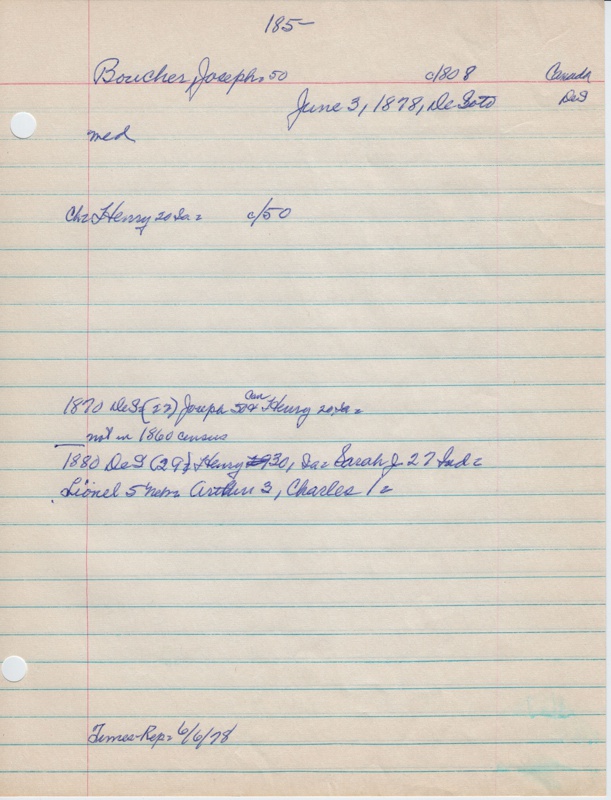 185-
Boucher, Joseph= 50 c/1808 Canada
June 3, 1878, DeSoto DeS
med
Ch= Henry 20 Ia = c/50
1870 DeS (22) Joseph Can Henry 20 Ia =
not in 1860 census
1880 DeS (29) Henry 30, Ia = Sarah J. 27 Ind =
Lionel 5 Neb= Arthur 3, Charles 1 =
Times-Rep= 6/6/78